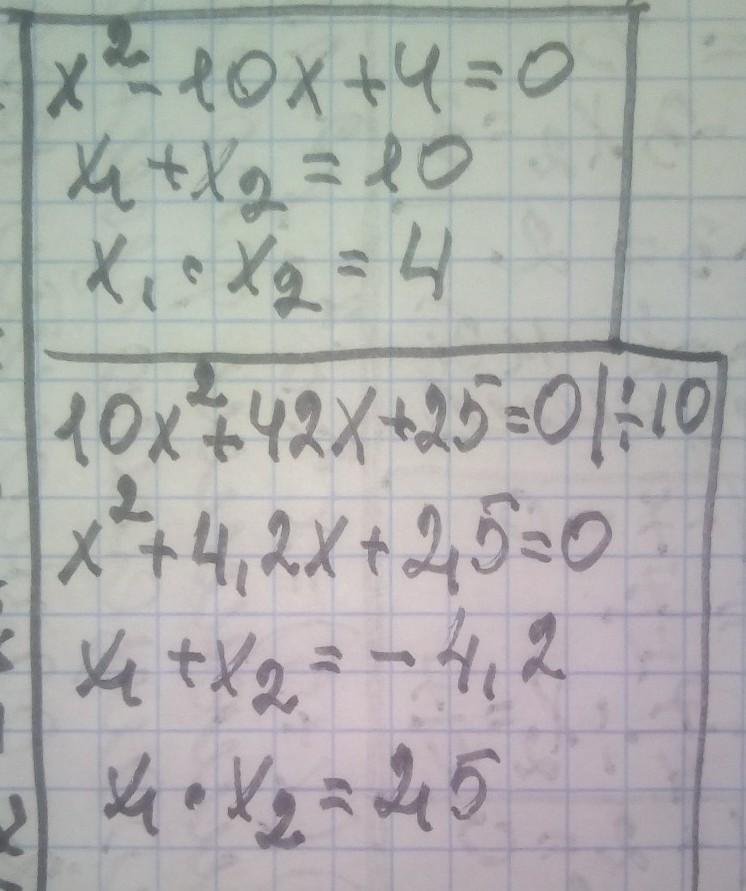 x² - 10x + 4 = 0
x₁ + x₂ = 10
x₁ · x₂ = 4
10x² + 42x + 25 = 0 | ÷ 10
x² + 4,2x + 2,5 = 0
x₁ + x₂ = - 4,2
x₁ · x₂ = 2,5